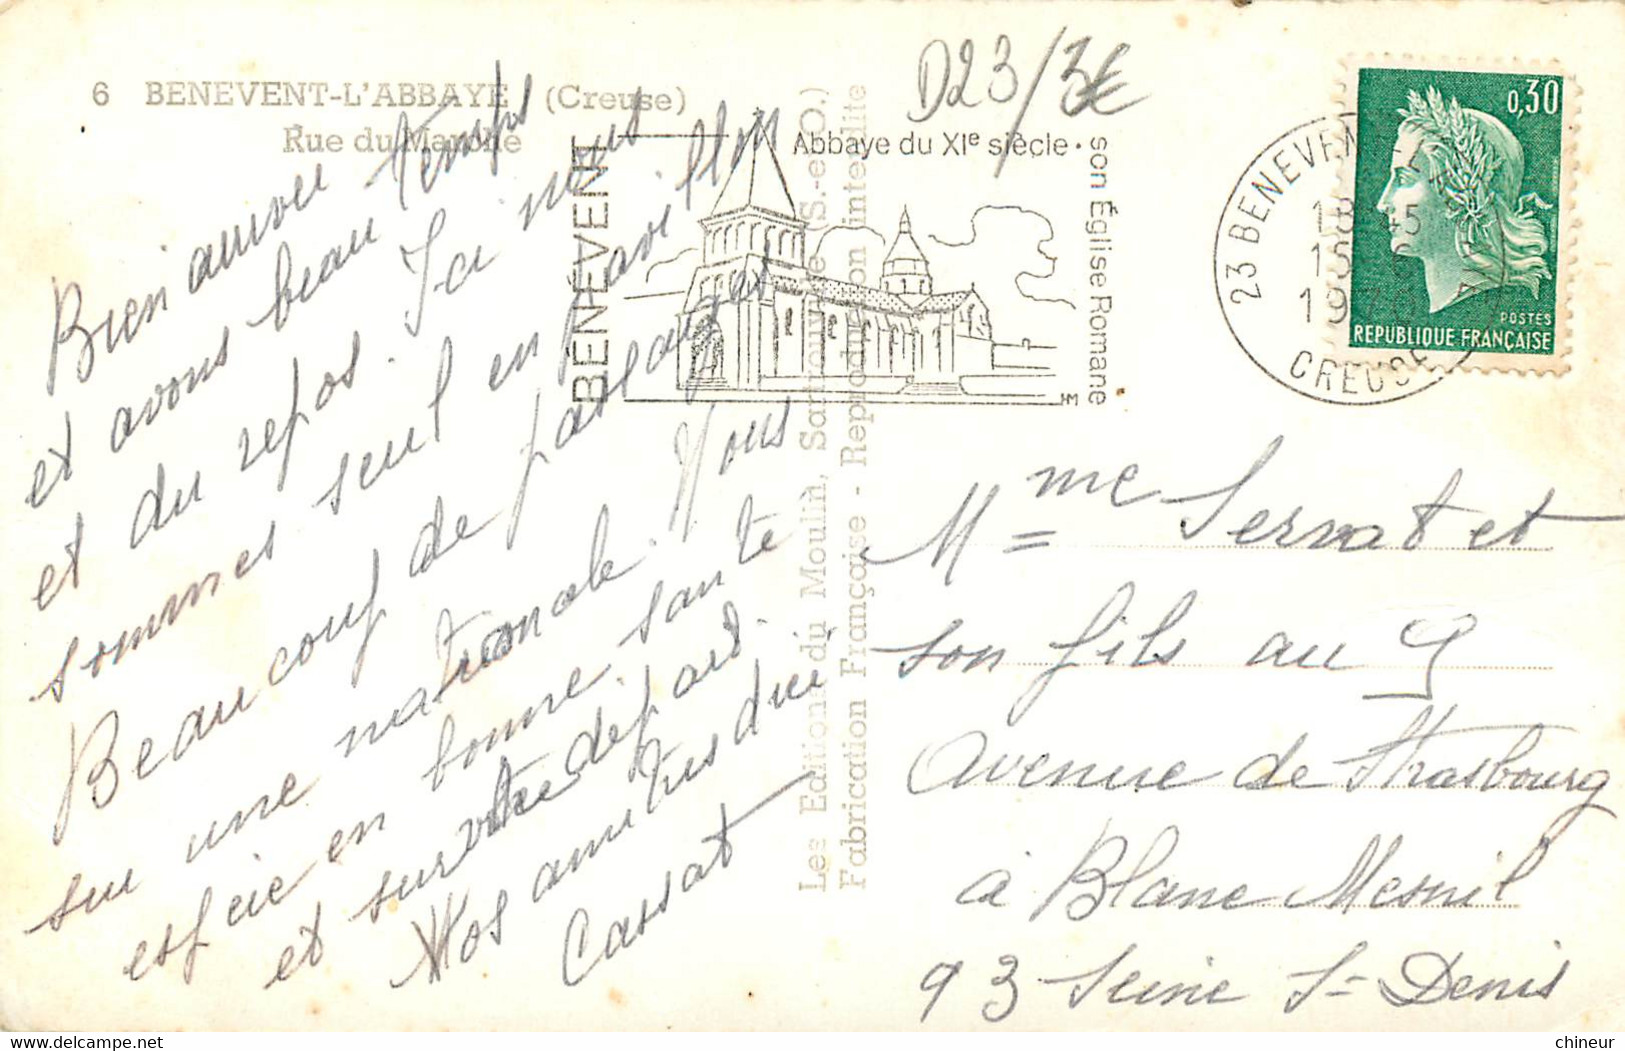 6 BENEVENT-L'ABBAYE (Creuse)
Rue du Marché
D23/3€
BÉNÉVENT
Abbaye du XIe siècle.
son Église Romane
HM
23 BENEVENT L'ABBAYE
18 45
15 6
1970
CREUSE
0,30
POSTES
REPUBLIQUE FRANÇAISE
Bien arrivée
et avons beau temps
et du repos. Ici nous
sommes seul en pavillon
Beaucoup de passages
sur une nationale. Vous
espère en bonne santé
et sur votre départ.
Nos amitiés
Cassat
Les Editions du Moulin, Sartrouville (S.-et-O.)
Fabrication Française - Reproduction interdite
Mme Sernat et
son fils au 9
Avenue de Strasbourg
à Blanc Mesnil
93 Seine St Denis
chineur